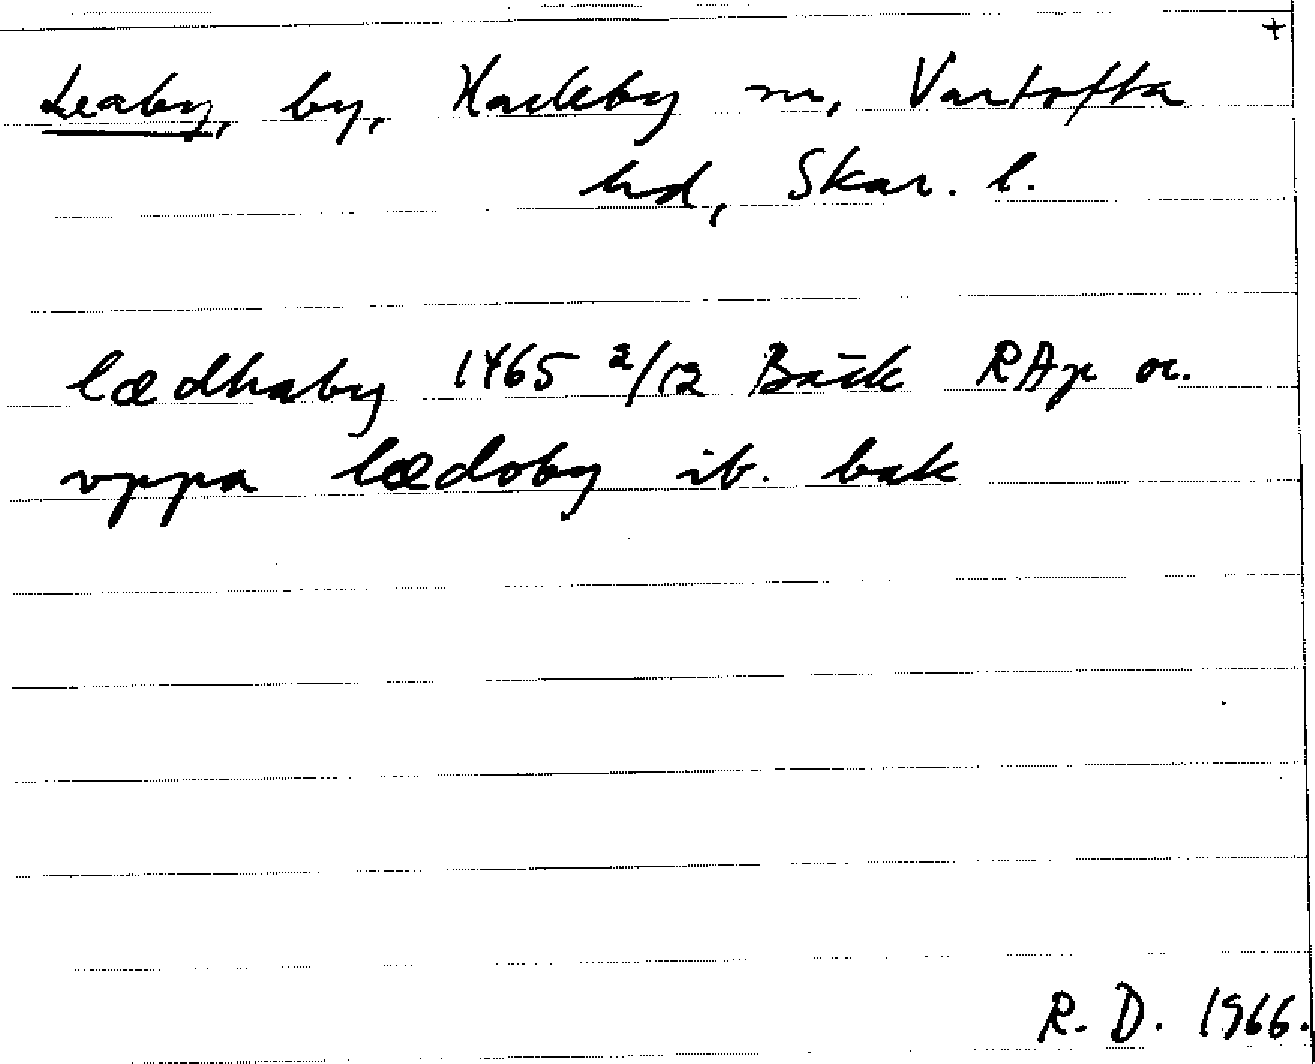 +
Leaby, by, Hackeby sn, Vartofta
hd, Skar. l.
lædhaby 1465 2/12 Bäck RAp or.
vppa lædoby ib. bak
R. D. 1966.